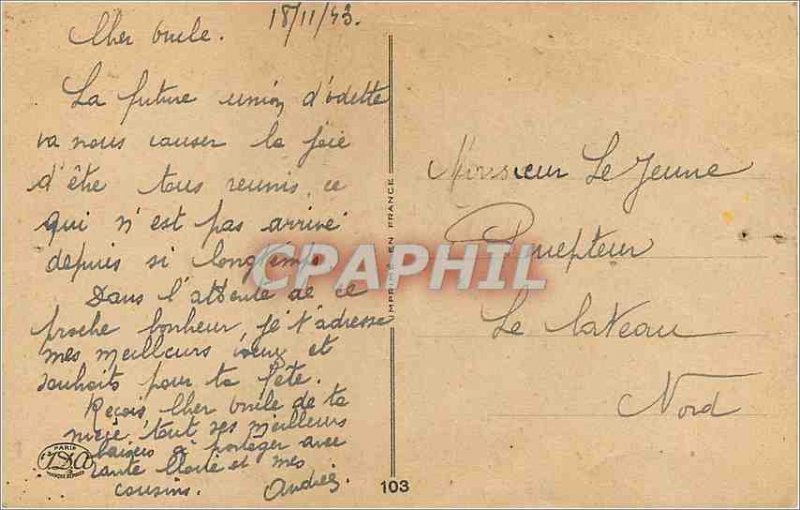 18/11/43.
Cher oncle.
La future union d'odette
va nous causer la joie
d'être tous reunis, ce
qui n'est pas arrivé
depuis si longtemps
Dans l'attente de ce
proche bonheur, je t'adresse
mes meilleurs vœux et
souhaits pour ta fête.
Reçois, Cher oncle de ta
nièce, tout ses meilleurs
baisers à partager avec
tante et mes
cousins. Andrée
IMPRIMÉ EN FRANCE
CPAPHIL
PARIS
103
Monsieur Le Jeune
Percepteur
Le Cateau
Nord